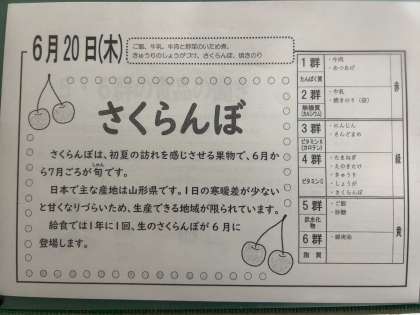 6月20日(木)
ご飯、牛乳、牛肉と野菜のいため煮、
きゅうりのしょうがづけ、さくらんぼ、焼きのり
さくらんぼ
さくらんぼは、初夏の訪れを感じさせる果物で、6月か
しゅん
ら7月ごろが旬です。
日本で主な産地は山形県です。1日の寒暖差が少ない
と甘くなりづらいため、生産できる地域が限られています。
給食では1年に1回、生のさくらんぼが6月に
登場します。
1群
たんぱく質
・牛肉
・あつあげ
2群
無機質
(カルシウム)
・牛乳
・焼きのり(袋)
赤
3群
ビタミンA
(カロテン)
・にんじん
・さんどまめ
4群
ビタミンC
・たまねぎ
・えのきたけ
・きゅうり
・しょうが
・さくらんぼ
緑
5群
炭水化物
・ご飯
・砂糖
6群
脂質
・綿実油
黄